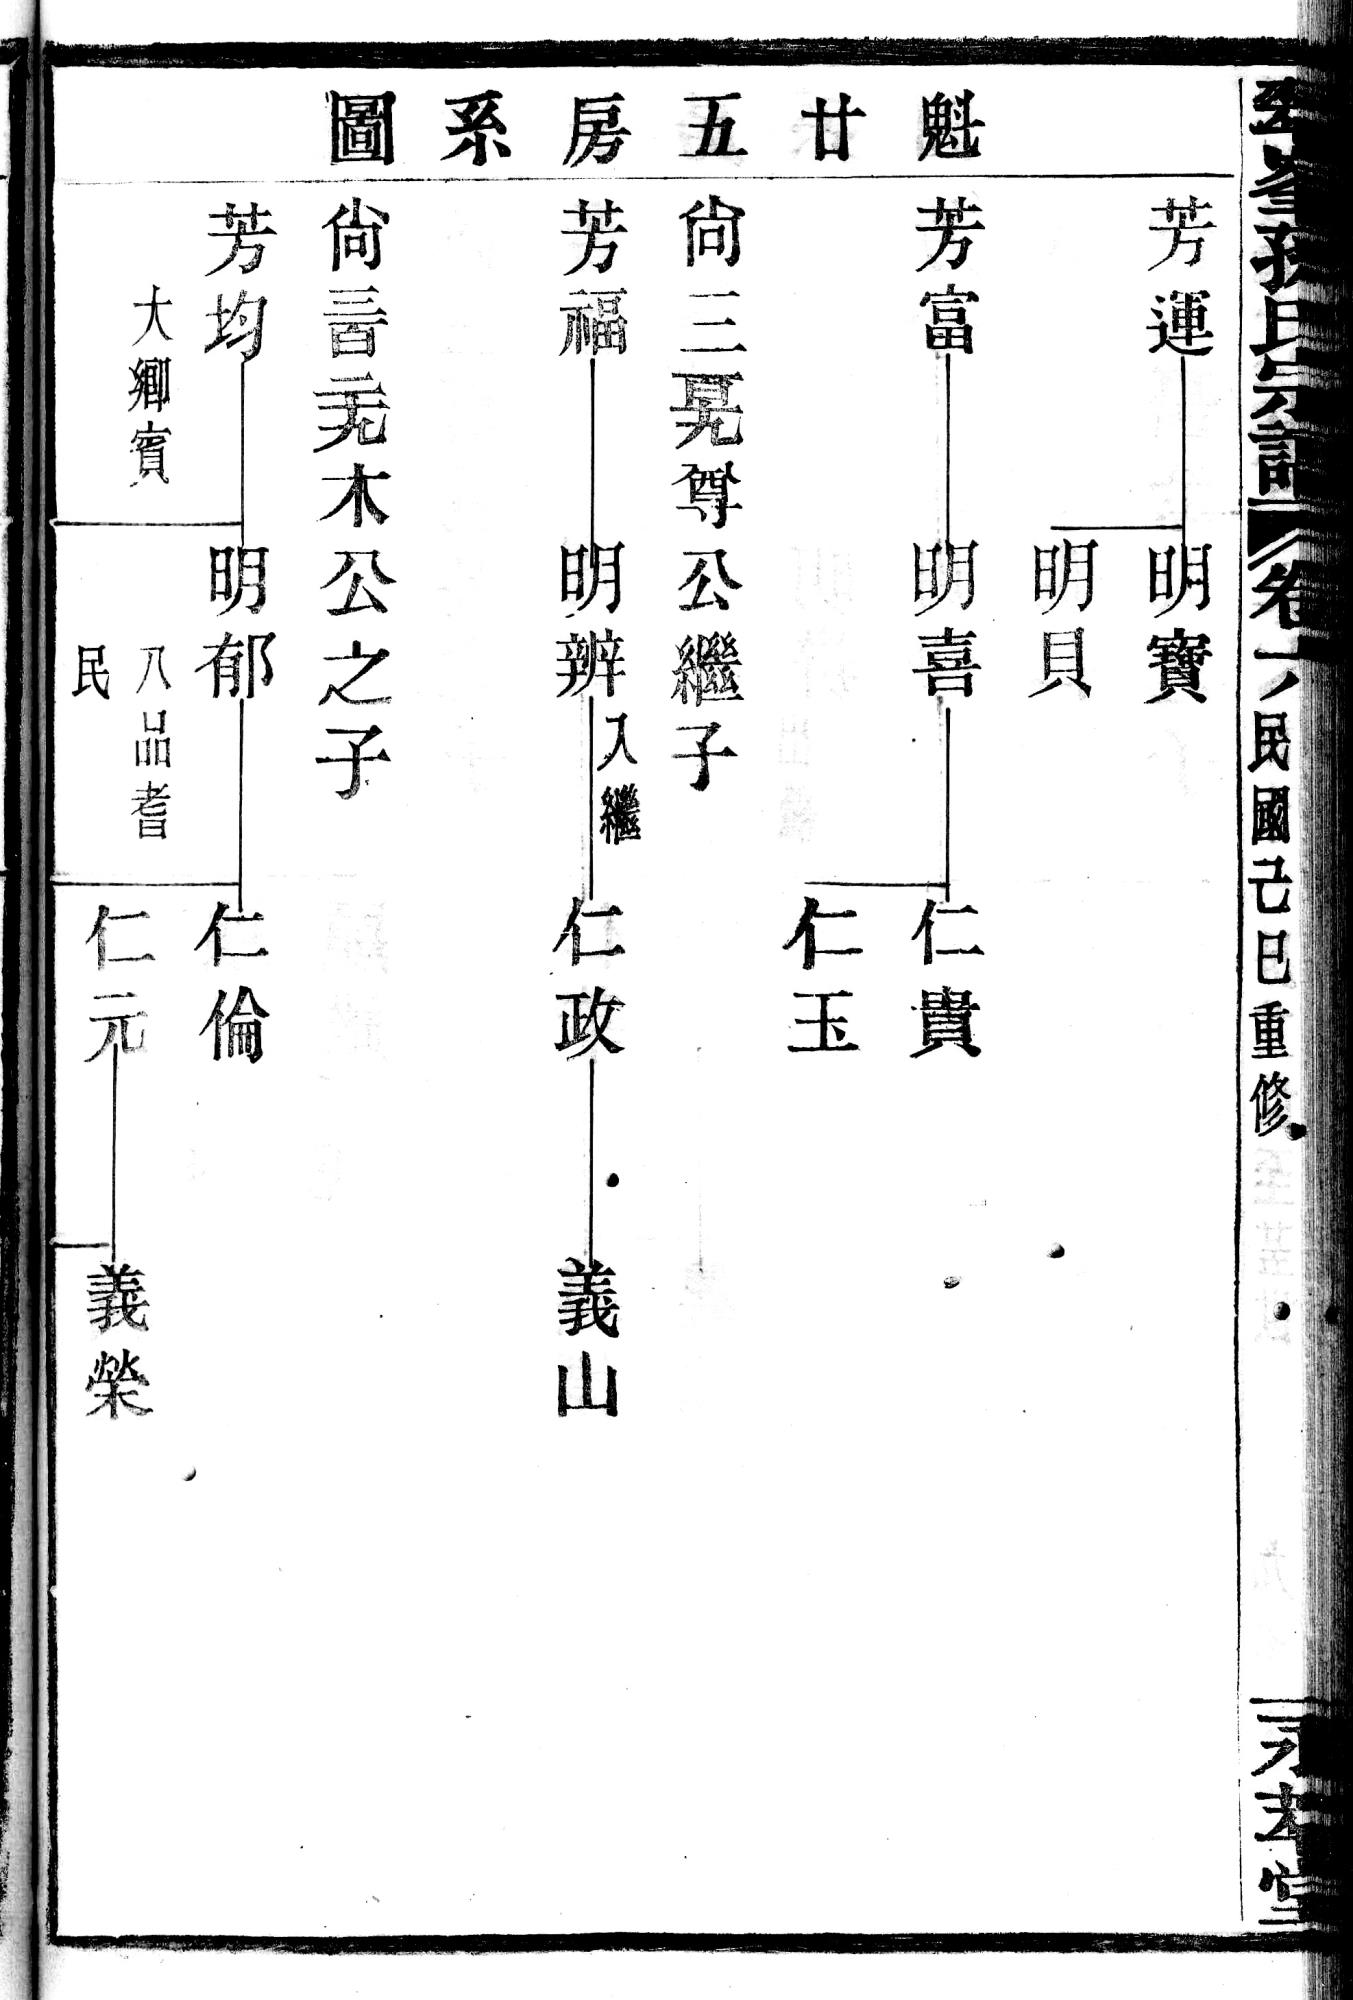 魁廿五房系圖
芳運
明寶
明貝
芳富
明喜
仁貴
仁玉
尙三晃尊公繼子
芳福
明辨
入繼
仁政
義山
尙木公之子
芳均
大鄉賓
明郁
八品耆民
仁倫
仁元
義榮
孫氏宗譜
卷
民國己巳重修
堂